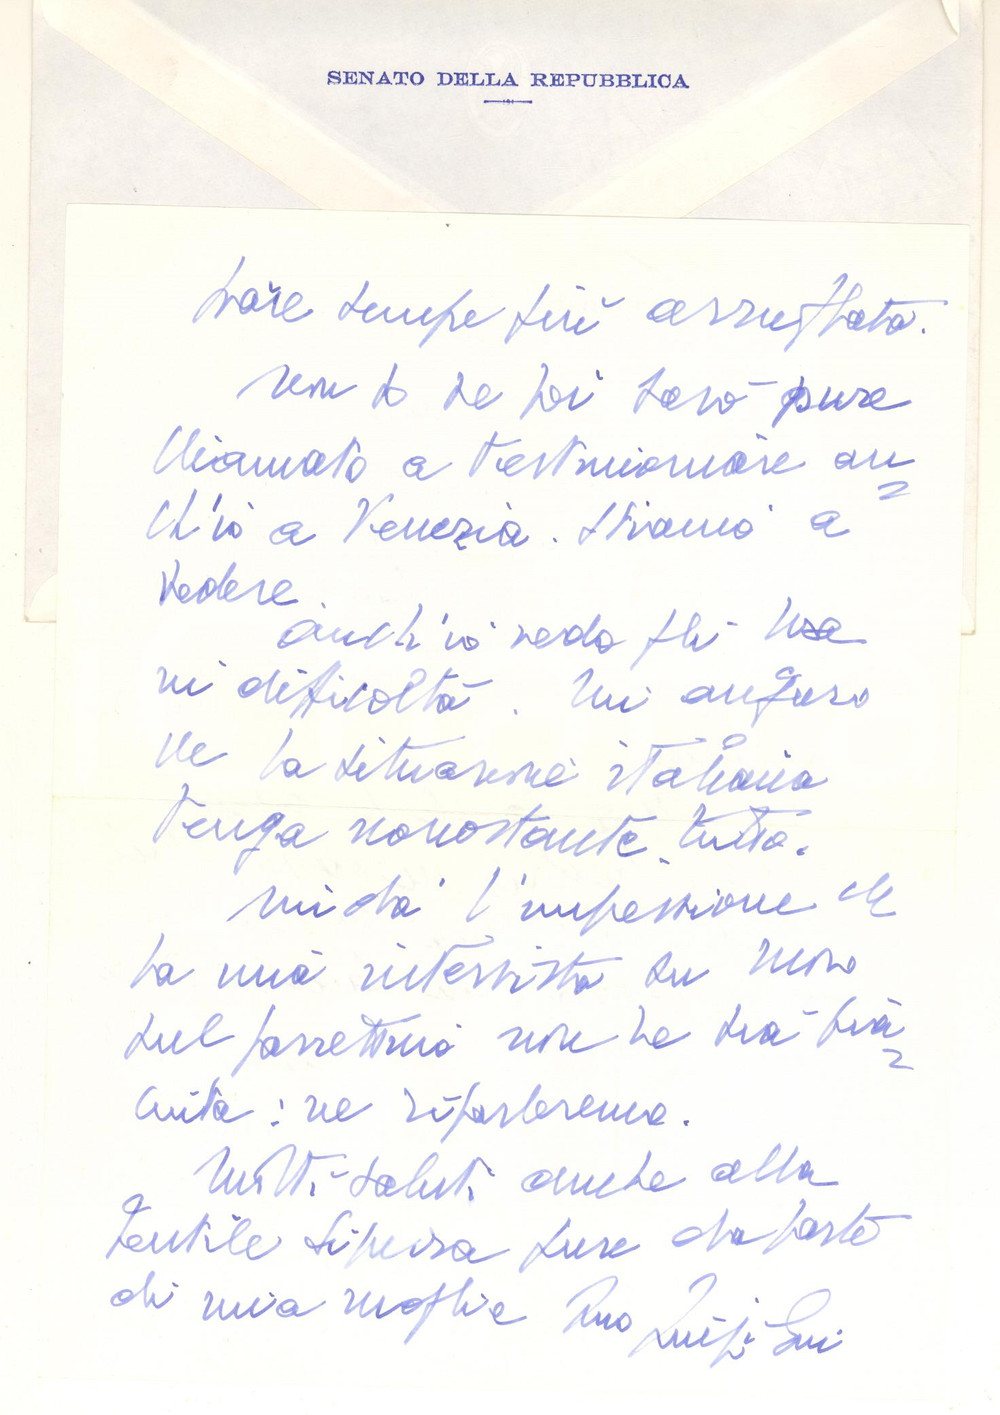 SENATO DELLA REPUBBLICA
sempre più
Non so se poi sarò pure
chiamato a testimoniare an=
ch'io a Venezia. Stiamo a
vedere.
Anch'io vedo gli
ni difficoltà. Mi auguro
che la situazione italiana
tenga nonostante tutto.
Mi dà l'impressione che
la mia intervista su Moro
sul non le sia pia=
ciuta: ne riparleremo.
Molti saluti anche alla
gentile Signora pure da parte
di mia moglie Suo Luigi Gui